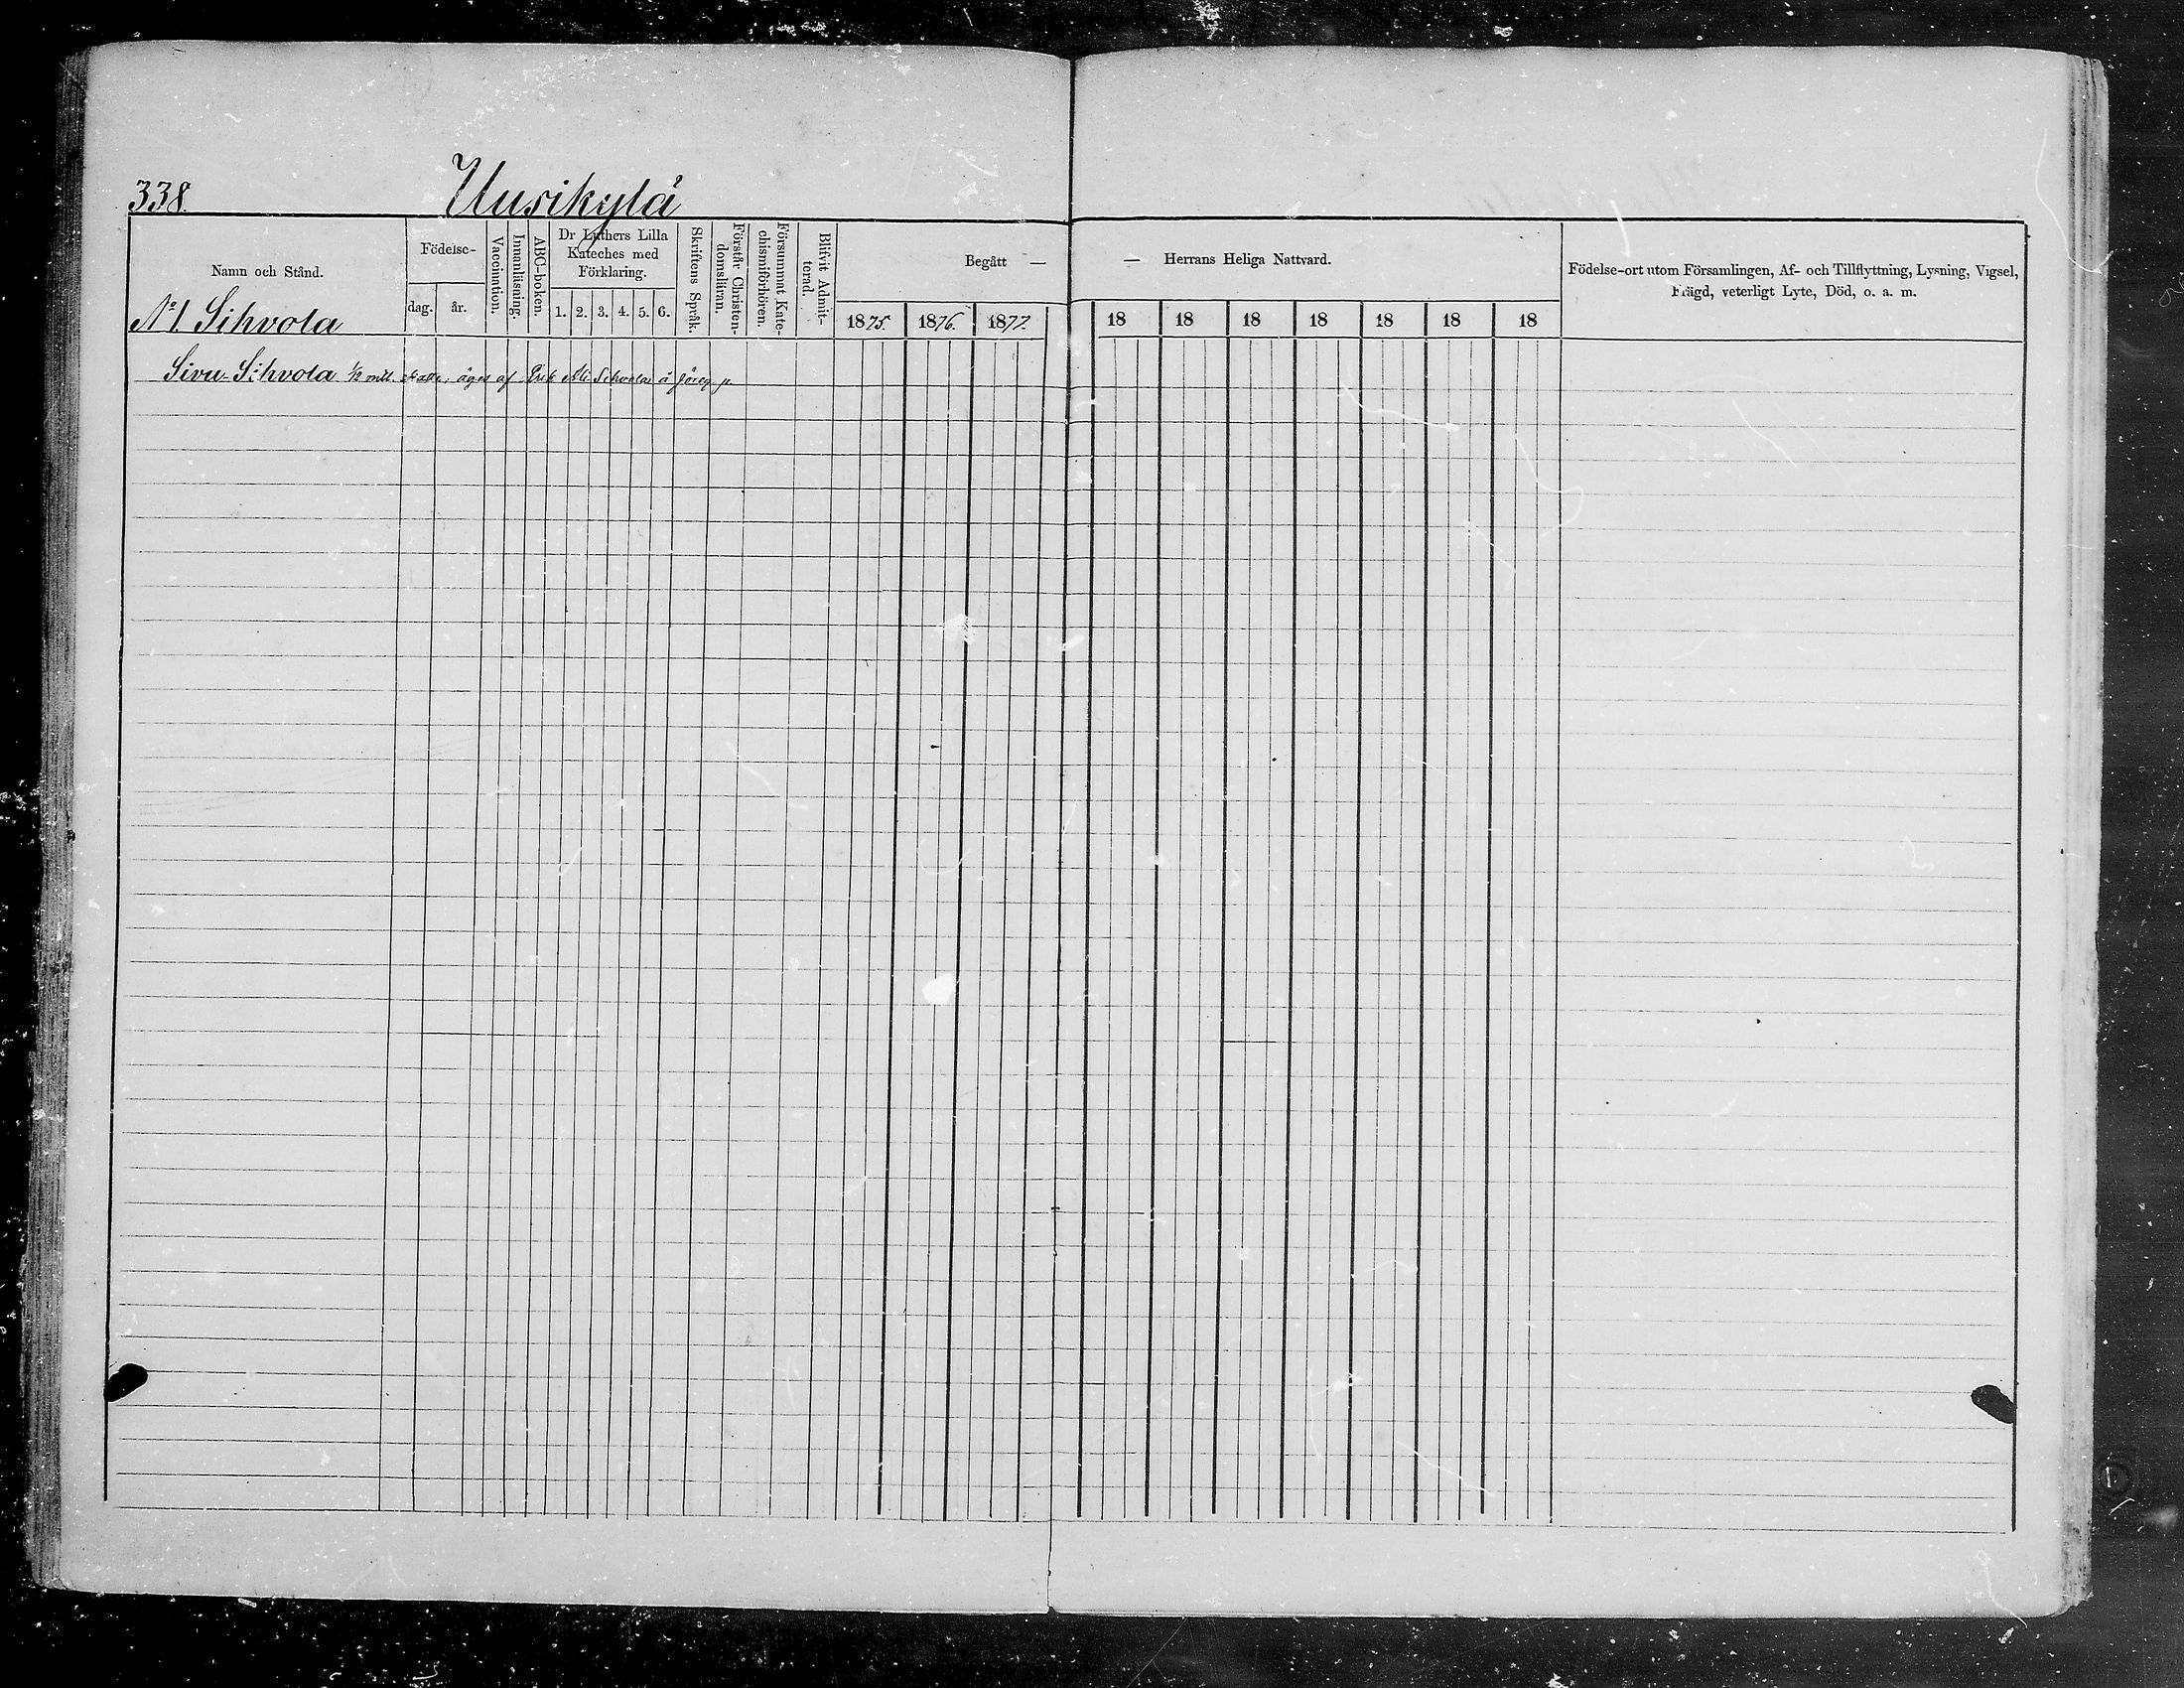 338.
Uusikylä
Namn och Stånd.
Födelse-
dag. år.
Vaccination.
Innanläsning.
ABC-boken.
Dr Luthers Lilla
Kateches med
Förklaring.
1. 2. 3. 4. 5. 6.
Skriftens Språk.
Förstår Christen-
domsläran.
Försummat Kate-
chismiförhören.
Blifvit Admit-
terad.
Begått —
1875. 1876. 1877.
— Herrans Heliga Nattvard.
18 18 18 18 18 18 18
Födelse-ort utom Församlingen, Af- och Tillflyttning, Lysning, Vigsel,
Frägd, veterligt Lyte, Död, o. a. m.
No 1 Sihvola
Sivu-Sihvola mtl. skatte, äges af Erik Sihvola å föreg. p.